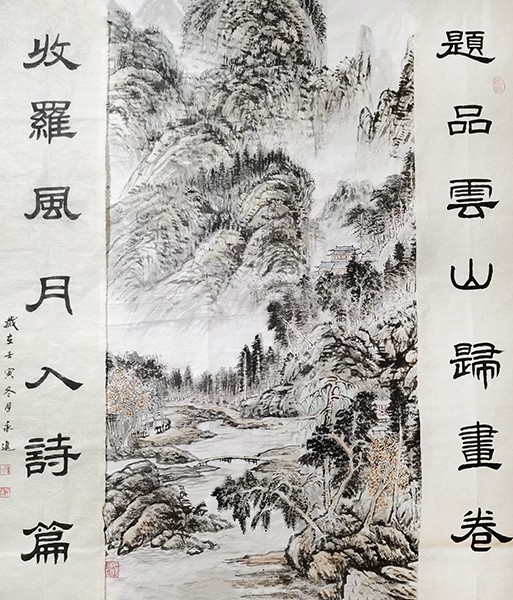 題品雲山歸畫卷
收羅風月入詩篇
歲在壬寅冬月永進